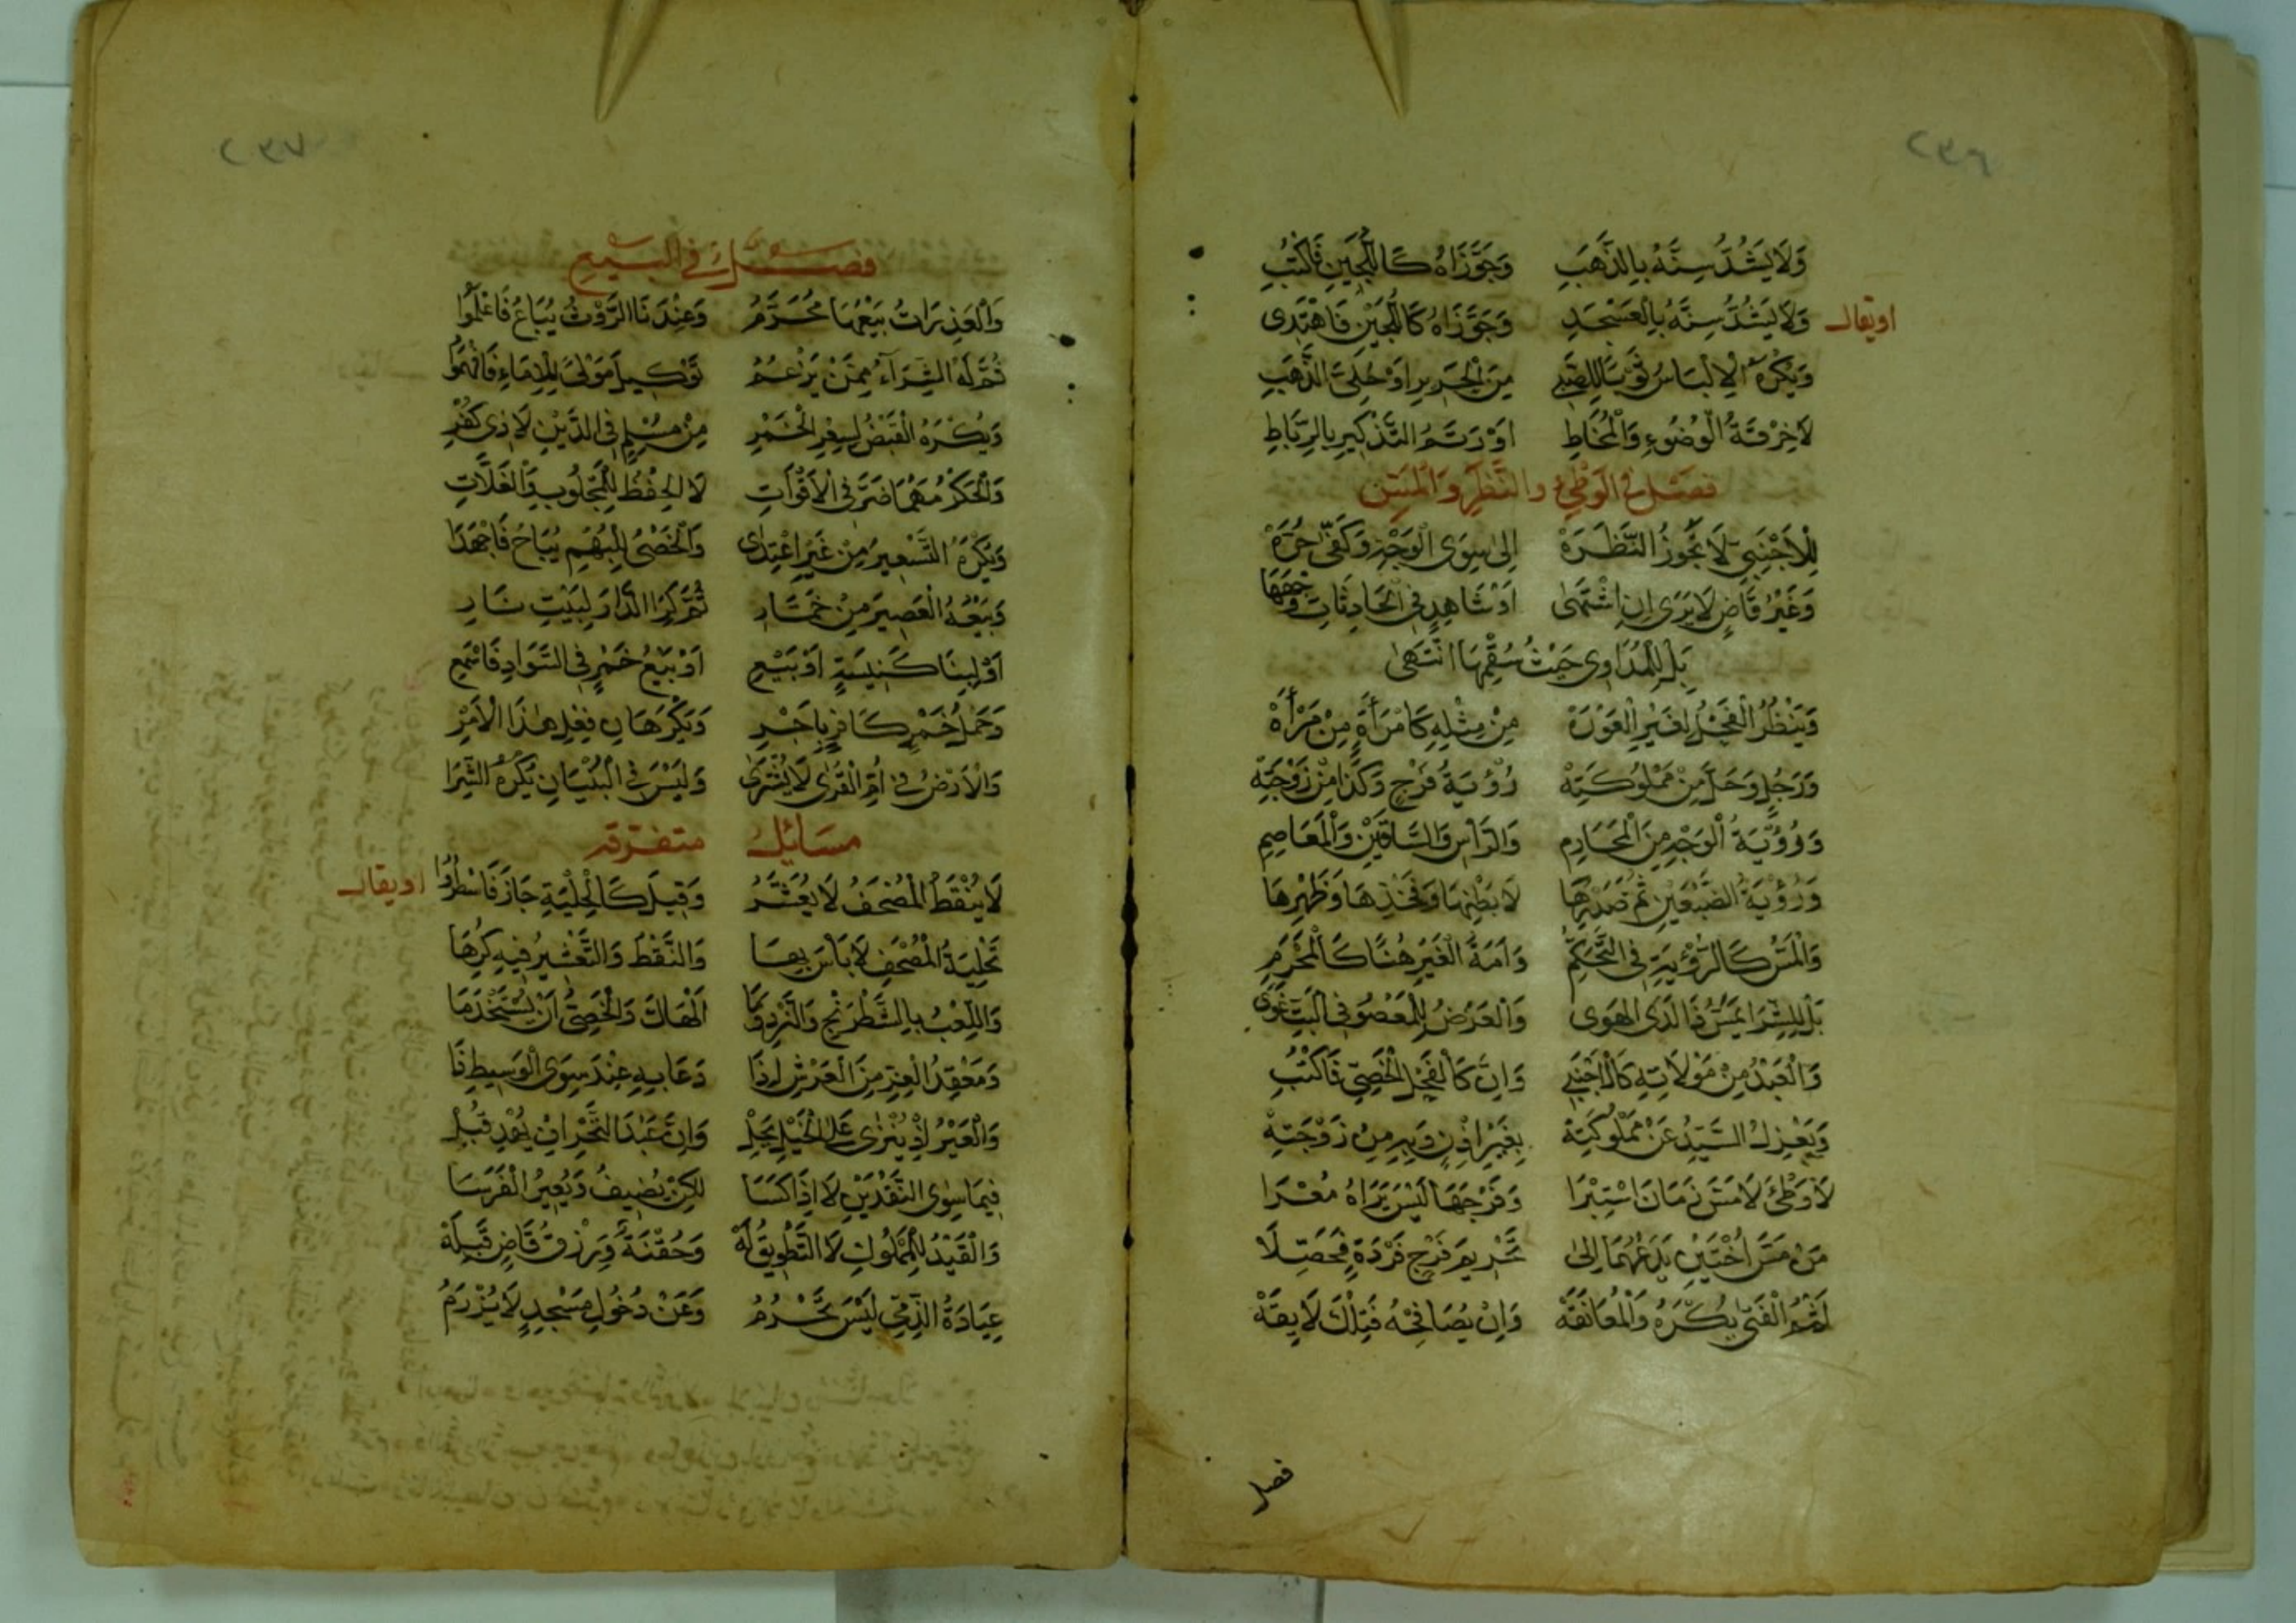 ٢٣٦
وَلَا يَشُدُّ سِنَّهُ بِالذَّهَبِ وَجَوَّزَاهُ كَاللُّجَيْنِ فَاكْتُبِ
او يقال وَلَا يَشُدُّ سِنَّهُ بِالْعَسْجَدِ وَجَوَّزَاهُ كَاللُّجَيْنِ فَاهْتَدِى
وَيُكْرَهُ الْإِلْبَاسُ ثَوْبًا لِلصَّبِي مِنَ الْحَرِيرِ اَوْ حُلِيِّ الذَّهَبِ
لَا خِرْقَةُ الْوُضُوءِ وَالْمُخَاطِ اَوْ رَتَمُ التَّذْكِيرِ بِالرِّبَاطِ
فصل في الوَطْئِ والنَّظَرِ وَالْمَسِّ
لِلْأَجْنَبِيِّ لَا تَجُوزُ النَّظْرَهْ اِلَى سِوَى الْوَجْهِ وَكَفَّيْ حُرَّهْ
وَغَيْرُ قَاضٍ لَا يَرَى اِنِ اشْتَهَى اَوْ شَاهِدٍ فِي الْحَادِثَاتِ وَجْهَهَا
بَلْ لِلْمُدَاوِى حَيْثُ سُقْمُهَا انْتَهَى
وَيَنْظُرُ الْفَحْلُ لِغَيْرِ الْعَوْرَهْ مِنْ مِثْلِهِ كَامْرَأَةٍ مِنْ مَرْأَهْ
وَرَجُلٍ وَحَلَّ مِنْ مَمْلُوكَتِهْ رُؤْيَةُ فَرْجٍ وَكَذَا مِنْ زَوْجَتِهْ
وَرُؤْيَةُ الْوَجْهِ مِنَ الْمَحَارِمِ وَالرَّأْسِ وَالسَّاقَيْنِ وَالْمَعَاصِمِ
وَرُؤْيَةُ الضَّبْعَيْنِ ثُمَّ صَدْرِهَا لَا بَطْنِهَا وَفَخْذِهَا وَظَهْرِهَا
وَالْمَسُّ كَالرُّؤْيَةِ فِي التَّحَكُّمِ وَاَمَةُ الْغَيْرِ هُنَا كَالْمَحْرَمِ
بَلْ لِلشِّرَا يَمَسُّ ذَا لَدَى الْهَوَى وَالْعَرْضُ لِلْمَعْصُوْ فِي الْبَتِّ غَوَى
وَالْعَبْدُ مِنْ مَوْلَاتِهِ كَالْأَجْنَبِي وَاِنَّ كَالْفَحْلِ الْخَصِيِّ فَاكْتُبِ
وَيَعْزِلُ السَّيِّدُ عَنْ مَمْلُوكَتِهْ بِغَيْرِ اِذْنٍ وَبِهِ مِنْ زَوْجَتِهْ
لَا وَطْئَ لَا مَسَّ زَمَانَ اسْتِبْرَا وَفَرْجَهَا لَيْسَ يَرَاهُ مُعْرَا
مَنْ مَسَّ اُخْتَيْنِ يَدَعْهُمَا اِلَى تَحْرِيمِ فَرْجِ فَرْدَةٍ فَحَصِّلَا
لَثْمُ الْفَتَى يُكْرَهُ وَالْمُعَانَقَهْ وَاِنْ يُصَافِحْهُ فَتِلْكَ لَايِقَهْ
فصل
٢٣٧
فصل في البيع
وَالْعَذِرَاتُ بَيْعُهَا مُحَرَّمُ وَعِنْدَنَا الرَّوْثُ يُبَاعُ فَاعْلَمُوا
ثُمَّ لَهُ الشِّرَآءُ مِمَّنْ يَزْعُمُ تَوْكِيلَ مَوْلَى لِلْإِمَاءِ فَافْهَمُوا
وَيُكْرَهُ الْقَبْضُ لِسِعْرِ الْخَمْرِ مِنْ مُسْلِمٍ فِي الدَّيْنِ لَا ذِي كُفْرِ
وَالْحَكْرُ مَهْمَا ضَرَّ فِي الْأَقْوَاتِ لَا الْحِفْظُ لِلْمَجْلُوبِ وَالْغَلَّاتِ
وَيُكْرَهُ التَّسْعِيرُ مِنْ غَيْرِ اعْتِدَى وَالْخَصْىُ لِلْبُهْمِ يُبَاحُ فَاجْهَدَا
وَبَيْعُهُ الْعَصِيرَ مِنْ خَمَّارِ ثُمَّ كِرَا الدَّارِ لِبَيْتِ نَارِ
اَوْ لِبِنَا كَنِيسَةٍ اَوْ بَيْعِ اَوْ بَيْعُ خَمْرٍ فِي السَّوَادِ فَاسْمَعِ
وَحَمْلُ خَمْرِ كَافِرٍ بِاَجْرِ وَيَكْرَهَانِ فِعْلَ هٰذَا الْأَمْرِ
وَالْأَرْضُ فِي اُمِّ الْقُرَى لَا تُشْتَرَى وَلَيْسَ فِي الْبُنْيَانِ يُكْرَهُ الشِّرَا
مسائل متفرقه
لَا يُنْقَطُ الْمُصْحَفُ لَا يُعَشَّرُ وَقِيلَ كَالْحِلْيَةِ جَازَ فَاسْطُرُوا او يقال
تَحْلِيَةُ الْمُصْحَفِ لَا بَاْسَ بِهَا وَالنَّقْطُ وَالتَّعْشِيرُ فِيهِ كُرِهَا
وَاللَّعْبُ بِالشَّطْرَنْجِ وَالنَّرْدِ وَمَا اَلْهَاكَ وَالْخَصِيُّ اَنْ يُسْتَخْدَمَا
وَمَعْقِدُ الْعِزِّ مِنَ الْعَرْشِ اِذَا دَعَا بِهِ عِنْدَ سِوَى الْوَسِيطِ ذَا
وَالْعَيْرُ اِذْ يُنْزَى عَلَى الْخَيْلِ يَحِلْ وَاِنَّ عَبْدَ التَّجْرِ اِنْ يُهْدِ قُبِلْ
فِيمَا سِوَى النَّقْدَيْنِ لَا اِذَا كَسَا لَكِنْ يُضِيفُ وَيُعِيرُ الْفَرَسَا
وَالْقَيْدُ لِلْمَمْلُوكِ لَا التَّطْوِيقُ لَهْ وَحُقْنَةٌ وَرِزْقُ قَاضٍ قَبِلَهْ
عِيَادَةُ الذِّمِّيِّ لَيْسَ تَحْرُمُ وَعَنْ دُخُولِ مَسْجِدٍ لَا يُزْرَمُ